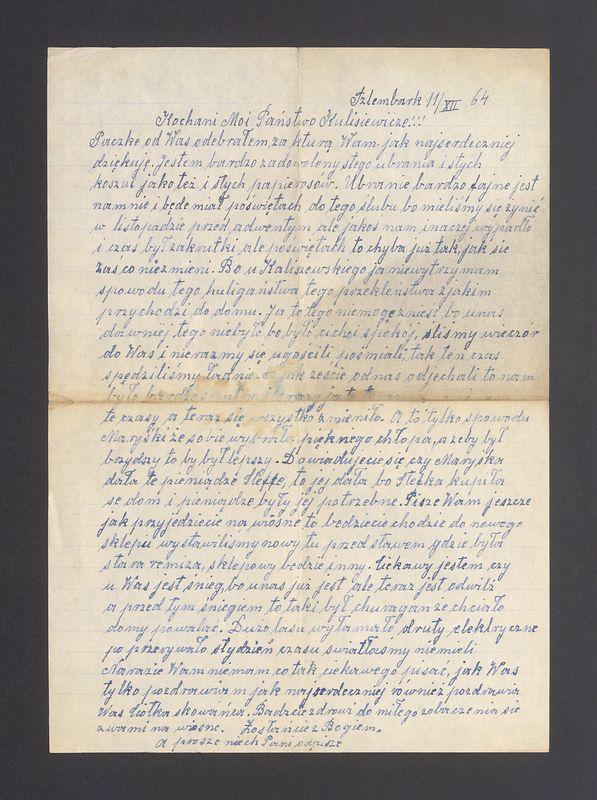 Szlembark 11/XII 64
Kochani Moi Państwo Kulisiewicze!!!
Paczkę od Was odebrałem, za kturą Wam jak najserdeczniej
dziękuję. Jestem bardzo zadowolony stego ubrania i stych
koszul jako też i stych papierosów. Ubranie bardzo fajne jest
namnie i będe miał poświętach do tego ślubu bo mieliśmy się żynić
w listopadzie przed adwentym ale jakoś nam inaczej wypadło
i czas był zakrutki, ale poświętach to chyba już tak, jak sie
zaś co niezmieni. Bo u Kaliszewskiego ja niewytrzymam
spowodu tego huligaństwa tego przekleństwa zjakim
przychodzi do domu. Ja to tego niemogę znieść bo unas
dawniej tego niebyło bo było cicho i spokój, śliśmy wieczór
do Was i nieraz my się ugościli, pośmiali, tak ten czas
spędziliśmy ładnie a jak żeście odnas odjechali to nam
było bardzo smutno i teraz ja
te czasy a teraz się wszystko zmieniło. A to tylko spowodu
Maryśki że sobie wybrała pięknego chłopa, a żeby był
brzydszy to by był lepszy. Dowiadujecie się czy Maryśka
dała te pieniądze Stefce, to jej dała bo Stefka kupiła
se dom i pieniądze były jej potrzebne. Pisze Wam jeszcze
jak przyjedziecie na wiosne to bedziecie chodzić do nowego
sklepu wystawiliśmy nowy tu przed stawem gdzie była
stara remiza, sklepowy bedzie inny. Ciekawy jestem czy
u Was jest śnieg, bo unas już jest ale teraz jest odwilż
a przed tym śniegiem to taki był churagan że chciało
domy powalać. Dużo lasu wyłamało druty elektryczne
po przerywało stydzień czasu światła iśmy niemieli
Narazie Wam niemam co tak ciekawego pisać, jak Was
tylko pozdrawiam jak najserdeczniej również pozdrawia
Was Ciotka skowańca. Bądzcie zdrowi do miłego zobaczenia sie
zwami na wiosne. Zostańcie z Bogiem.
A prosze niech Pani odpisze